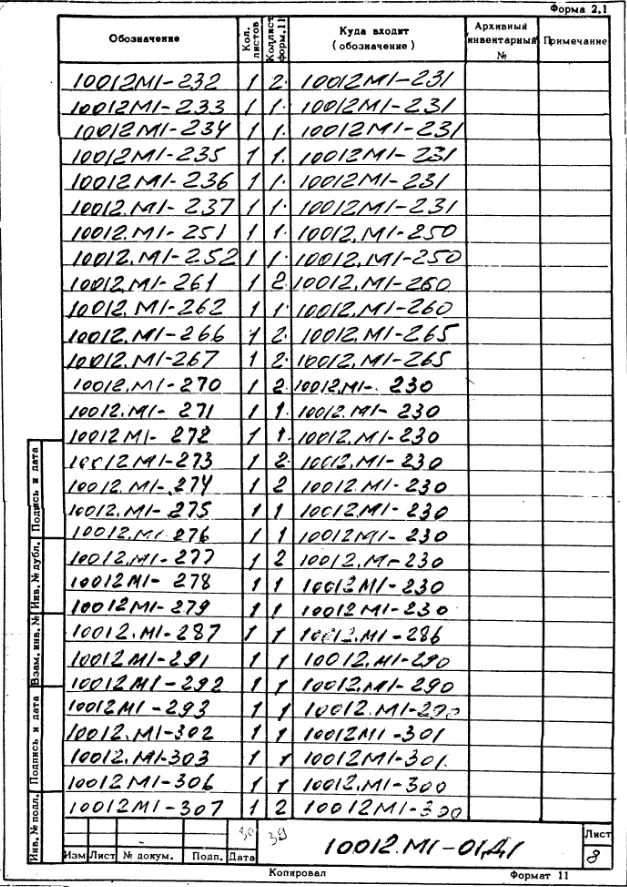 Форма 2.1
Обозначение Кол. листов Кол. лист. форм. 11 Куда входит (обозначение) Архивный инвентарный № Примечание
10012М1-232 1 2 10012М1-231
10012М1-233 1 1 10012М1-231
10012М1-234 1 1 10012М1-231
10012М1-235 1 1 10012М1-231
10012М1-236 1 1 10012М1-231
10012.М1-237 1 1 10012М1-231
10012.М1-251 1 1 10012.М1-250
10012.М1-252 1 1 10012.М1-250
10012.М1-261 1 2 10012.М1-260
10012.М1-262 1 1 10012.М1-260
10012.М1-266 1 2 10012.М1-265
10012.М1-267 1 2 10012.М1-265
10012.М1-270 1 2 10012.М1-230
10012.М1-271 1 1 10012.М1-230
10012М1-272 1 1 10012.М1-230
10012М1-273 1 2 10012.М1-230
10012.М1-274 1 2 10012.М1-230
10012.М1-275 1 1 10012.М1-230
10012.М1-276 1 1 10012М1-230
10012.М1-277 1 2 10012.М1-230
10012М1-278 1 1 10012М1-230
10012М1-279 1 1 10012М1-230
10012.М1-287 1 1 10012.М1-286
10012М1-291 1 1 10012.М1-290
10012М1-292 1 1 10012.М1-290
10012М1-293 1 1 10012.М1-290
10012.М1-302 1 1 10012М1-301
10012.М1-303 1 1 10012М1-301.
10012М1-306 1 1 10012.М1-300
10012М1-307 1 2 10012М1-300
Подпись и дата
Инв. № дубл.
Взам. инв. №
Подпись и дата
Инв. № подл.
Изм Лист № докум. Подп. Дата
39
10012.М1-01Д1
Лист
8
Копировал Формат 11